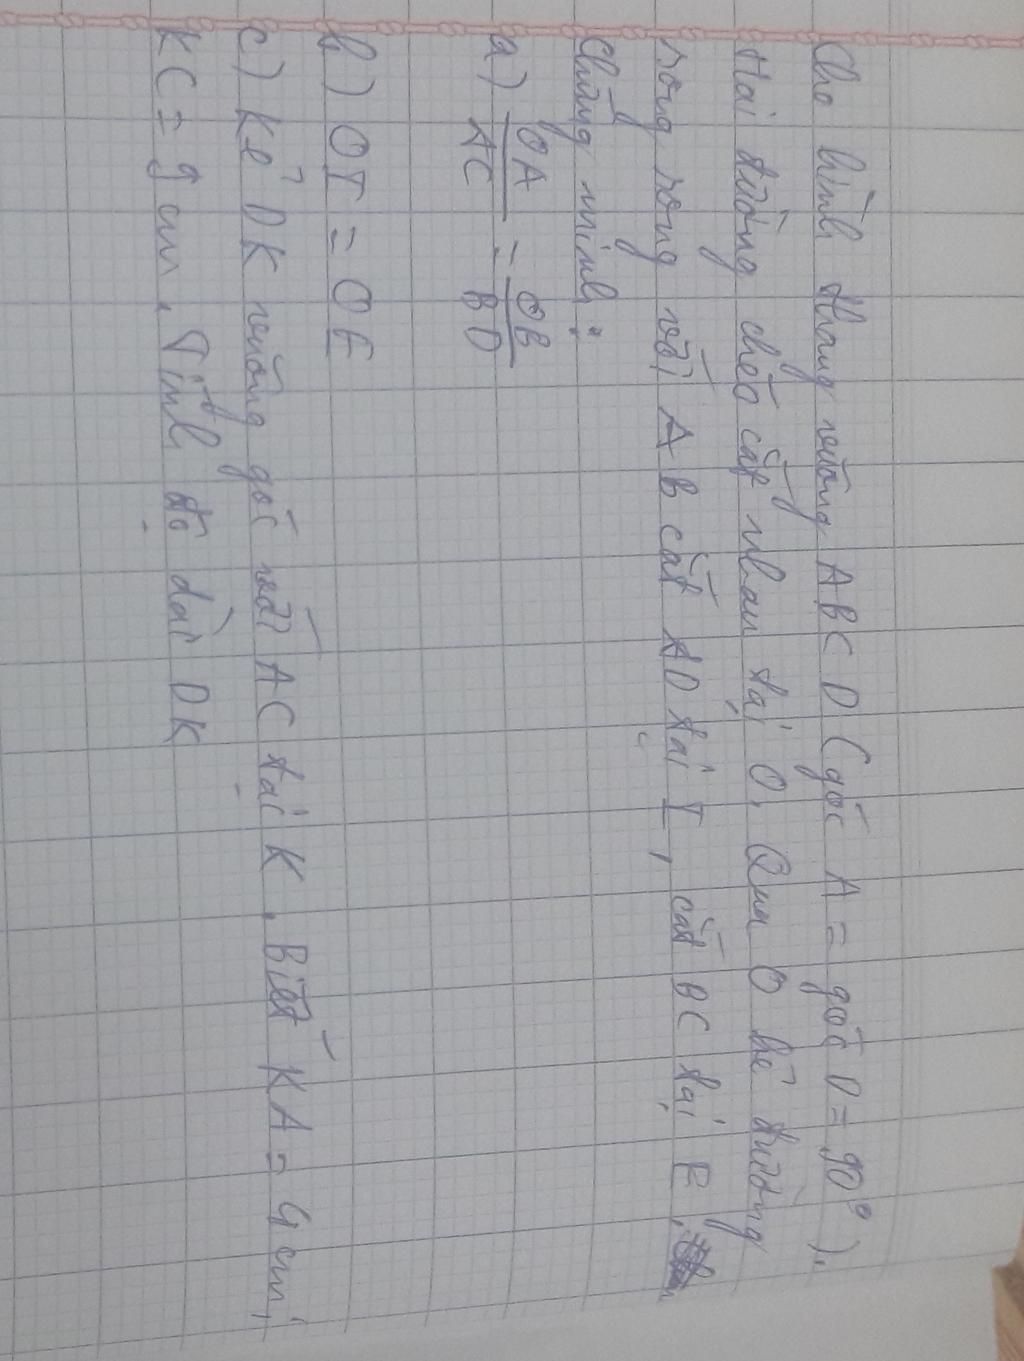 Cho hình thang vuông ABCD (góc A = góc D = 90°).
Hai đường chéo cắt nhau tại O. Qua O kẻ đường
song song với AB cắt AD tại I, cắt BC tại E.
Chứng minh:
a) OA/AC = OB/BD
b) OI = OE
c) Kẻ DK vuông góc với AC tại K. Biết KA = 4 cm,
KC = 9 cm. Tính độ dài DK